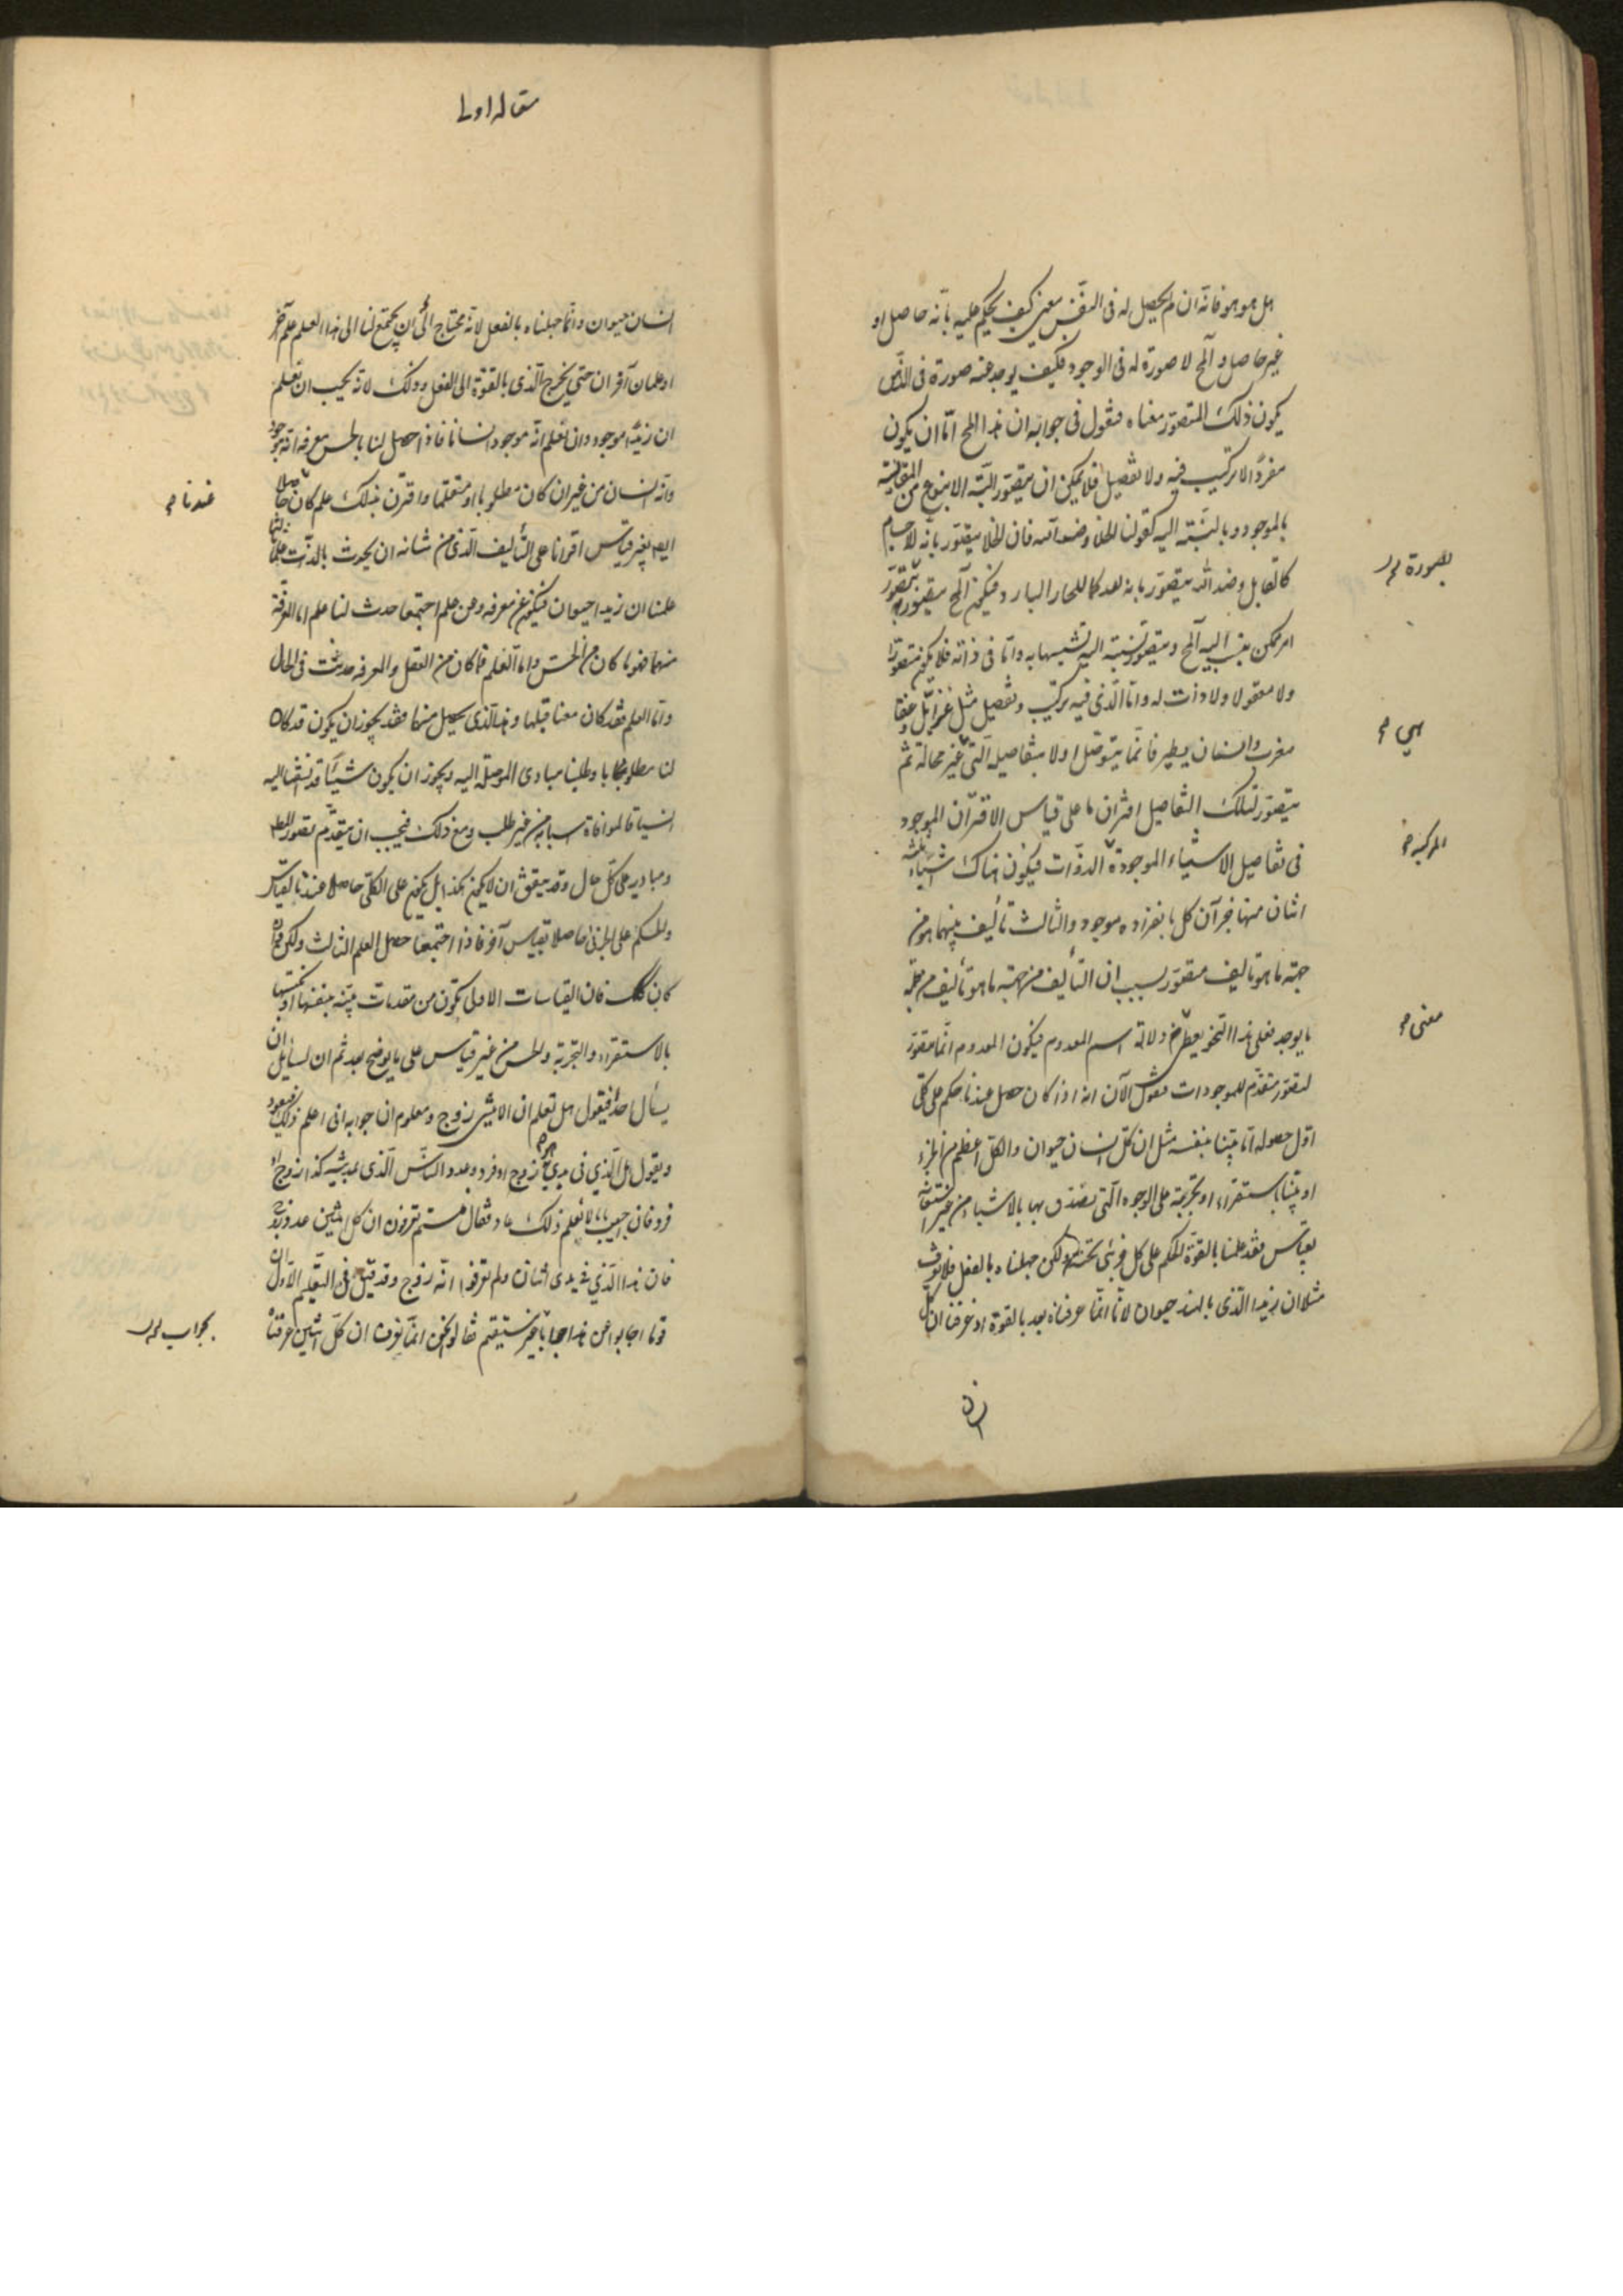 هل هو هو فانه ان لم يحصل له فى النفس معنى كيف يحكم عليه بانّه حاصل او
غير حاصل و المح لا صورة له فى الوجود فكيف يوجد عنه صورة فى الذهن
يكون ذلك المتصور معناه فنقول فى جوابه ان هذا المح امّا ان يكون
مفردًا لا تركيب فيه ولا تفصيل فلا يمكن ان يتصوّر البتّه الا بنوع من المقايسة
بالموجود و بالنّسبته اليه كقولنا الخلا و ضد الله فان الخلا يتصوّر بانّه للاجسام
كالقابل و ضد الله يتصوّر بانه لله كما للحار البارد فيكون المح يتصوّر بتصوّر
امر ممكن ينسب اليه المح و يتصوّر نسبته اليه و تشبيها به و امّا فى ذاته فلا يكون متصوّرا
ولا معقولا ولا ذات له و امّا الّذى فيه تركيب و تفصيل مثل عنز ايّل و عنقا
مغرب و انسان يطير فانّما يتصوّر اولا بتفاصيله الّتى غير محالة ثم
يتصوّر لتلك التفاصيل اقتران ما على قياس الاقتران الموجود
فى تفاصيل الاشياء الموجودة الذوّات فيكون هناك اشياء ثلثه
اثنان منها جزآن كل بانفراده موجود و الثالث تأليف بينهما هو من
جهة ما هو تاليف متصوّر بسبب ان التأليف من جهة ما هو تأليف من جملة
ما يوجد فعلى هذا النّحو يعطى دلالة اسم المعدوم فيكون المعدوم انّما تصوّر
لتصوّر متقدّم للموجودات فنقول الآن انه اذا كان حصل عندنا حكم على كلّى
اوّل حصوله امّا بيّنا بنفسه مثل ان كلّ انسان حيوان و الكل اعظم من الجزء
او بيّنا باستقراء او تجربة على الوجوه الّتى يصدّق بها بالاشياء من غير استعانة
بقياس فقد علمنا بالقوّة الحكم على كل جزئى تحته و لكن جهلناه بالفعل فلا نعرف
مثلا ان زيدا الّذى بالهند حيوان لانّا انّما عرفناه بعد بالقوة اذ عرفنا ان كلّ
بصورة
هى
المركبة
معنى
مقاله اولى
انسان حيوان و انّما جهلناه بالفعل لانّه يحتاج الى ان يجتمع لنا الى هذا العلم علم آخر
او علمان آخران حتى يخرج الّذى بالقوّة الى الفعل و ذلك لانّه يجب ان نعلم
ان زيدًا موجود و ان نعلم انّه موجود انسانا فاذا حصل لنا بالحس معرفة انّه موجود
و انّه انسان من غير ان كان مطلوبا او متعلّما و اقترن بذلك علم كان حاصلا
ايضا بغير قياس اقترانا على التأليف الّذى من شانه ان يحدث بالذّات علما ثالثا
علمنا ان زيدا حيوان فيكون عن معرفة و عن علم اجتمعا حدث لنا علم اما المعرفة
منهما فهو ما كان من الحسّ و اما العلم فما كان من العقل و المعرفة حدثت فى الحال
و امّا العلم فقد كان معنا قبلها و هذا الّذى يحصل منهما فقد يجوز ان يكون قد كان
لنا مطلوبا و طلبنا مبادى الموصلة اليه و يجوز ان يكون شيئًا قد انسقنا اليه
انسياقا لموافاة اسبابه من غير طلب و مع ذلك فيجب ان يتقدّم تصوّر المطلوب
و مباديه على كلّ حال و قد يتّفق ان لا يكون هكذا بل يكون على الكلّى حاصلا عندنا بقياس
و الحكم على الجزئى حاصلا بقياس آخر فاذا اجتمعا حصل العلم الثالث و لكن و ان
كان كذلك فان القياسات الاول تكون من مقدمات بيّنه بنفسها او مكتسبة
بالاستقراء و التجربة و الحس من غير قياس على ما يوضح بعد ثم ان لسائل ان
يسأل احدًا فيقول هل تعلم ان كل اثنين زوج و معلوم ان جوابه انى اعلم ذلك فيعود
و يقول هل الّذى فى يدى هو زوج او فرد و عدد النّاس الّذى بمدينة كذا زوج او
فرد فان اجيب بانا لا نعلم ذلك عاد فقال فلستم تعرفون ان كل اثنين عدد زوج
فان هذا الّذى فى يدى اثنان و لم تعرفوا انّه زوج و قد قيل فى التعليم الاوّل ان
قوما اجابوا عن هذا جوابا غير مستقيم فقالوا نحن انّما نعرف ان كلّ اثنين عرفناه
عندنا
بجواب